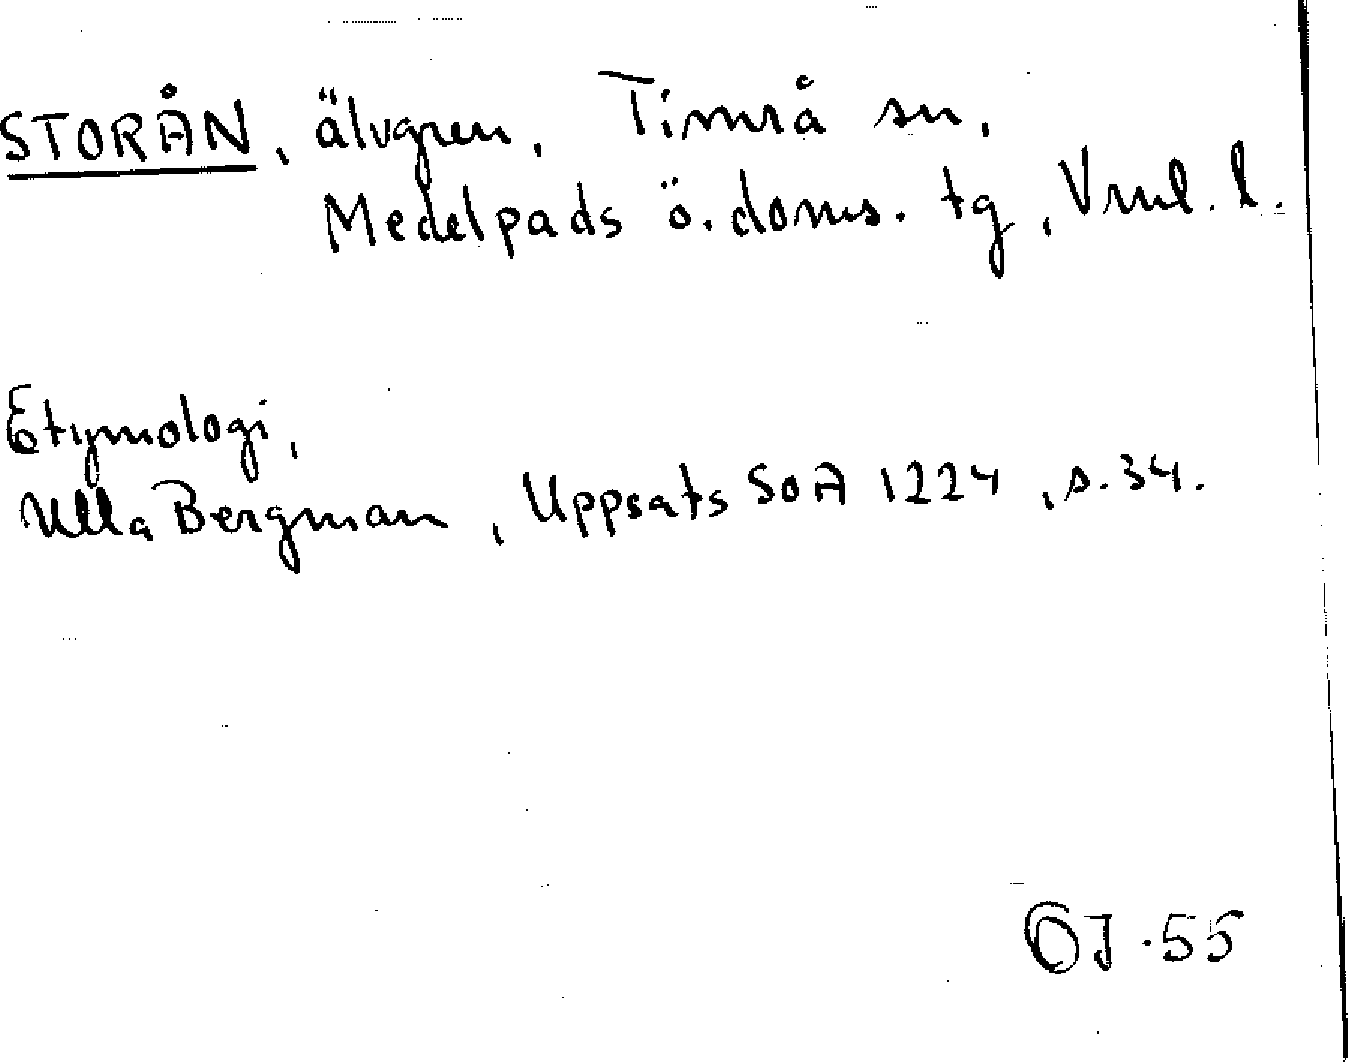 STORÅN, älvgren, Timrå sn,
Medelpads ö. doms. tg, Vnrl. l.
Etymologi,
Ulla Bergman, Uppsats SOA 1224, s. 34.
OJ. 55